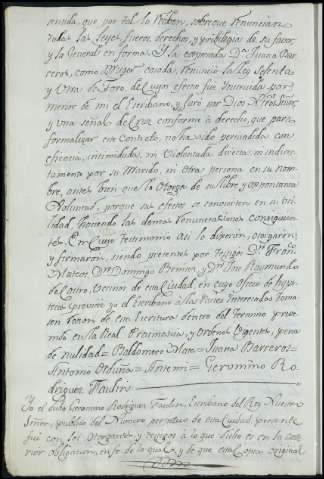 senida, que por tal lo hedan, sobre que renuncian
todas las Leyes, fueros, derechos, y pribilegios de su favor
y la General en forma. Y la expresada Dª. Juana Bar
reros, como Muger casada, renunció la Ley sesenta
y Una de Toro, de Cuyo efecto fue instruida por
menor de mi el Escribano, y Juró por Dios Ntro. Señor,
y una señal de Cruz conforme à derecho, que para
formalizar este Contrato, no ha sido persuadida con
eficacia, intimidada, ni Violentada, directa, ni indirec
tamente por su Marido, ni otra persona en su nom
bre, antes bien que lo otorga de su libre y expontanea
Voluntad, porque sus efectos se convierten en su Uti
lidad, haciendo las demas renunciaciones consiguien
tes. En Cuyo testimonio asi lo dijeron, otorgaron,
y firmaron, siendo presentes por testigos Dn. Franco.
Mateos, Dn. Domingo Bremon, y Dn. Jose Raymundo
de Castro, Vecinos de esta Ciudad, en Cuyo Oficio de hypo
tecas previne yo el Escribano à las Partes Interesadas toma
sen razon de esta Escritura dentro del termino preve
nido en la Real Pracmatica, y Ordenes Vigentes, pena
de nulidad = Baldomero Mateo = Juana Barreros =
Antonio = Antemi = Geronimo Ro
driguez Faulin
Yo el dicho Geronimo Rodriguez Faulin, Escribano del Rey Nuestro
Señor, publico del Numero perpetuo de esta Ciudad, presente
fui con los Otorgantes y testigos à lo que dicho es en la ante
rior obligacion, en fe de lo qual, y de que esta Copia original